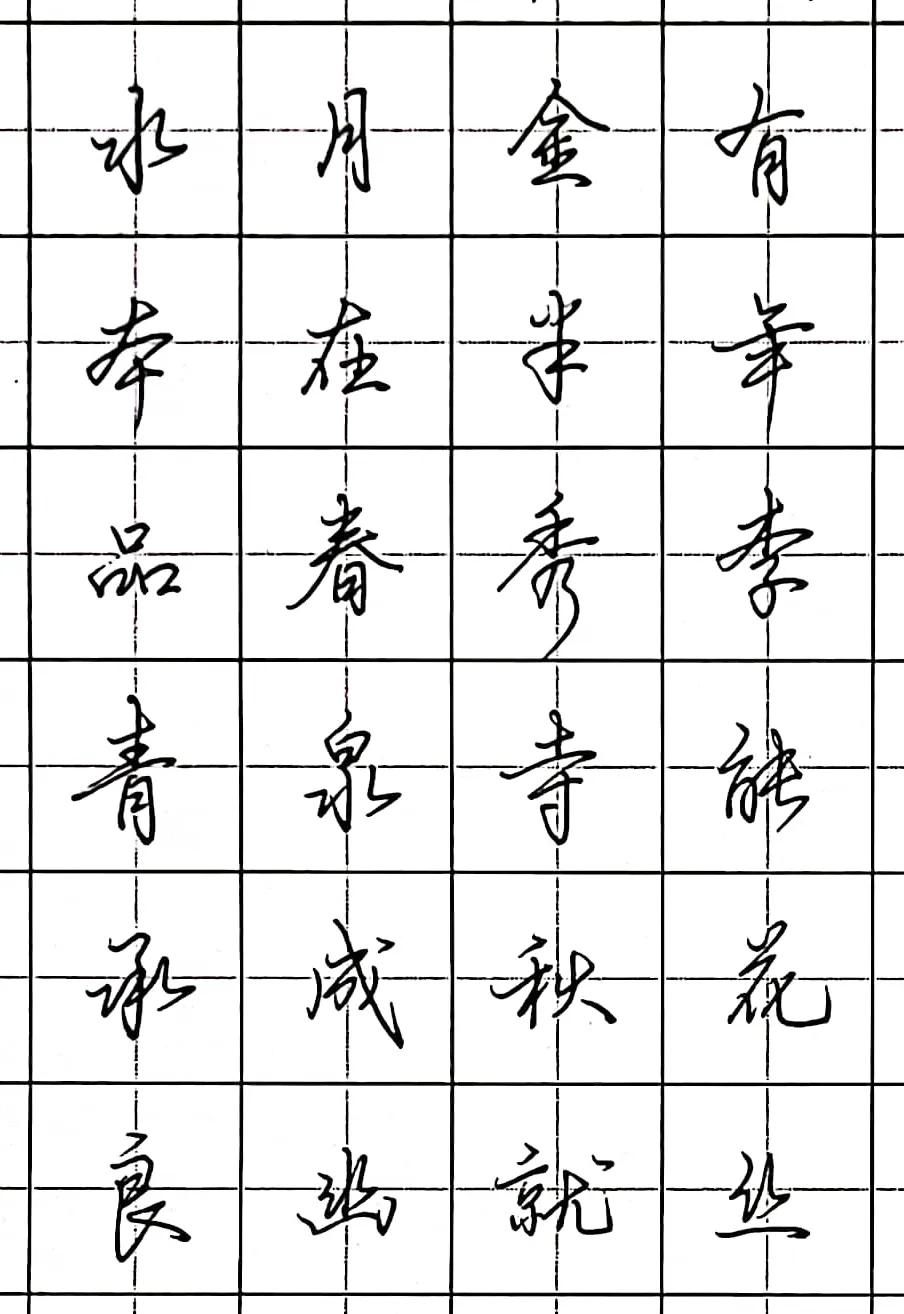 水月金有
本在半年
品春秀李
青泉寺能
承成秋花
良幽就丝